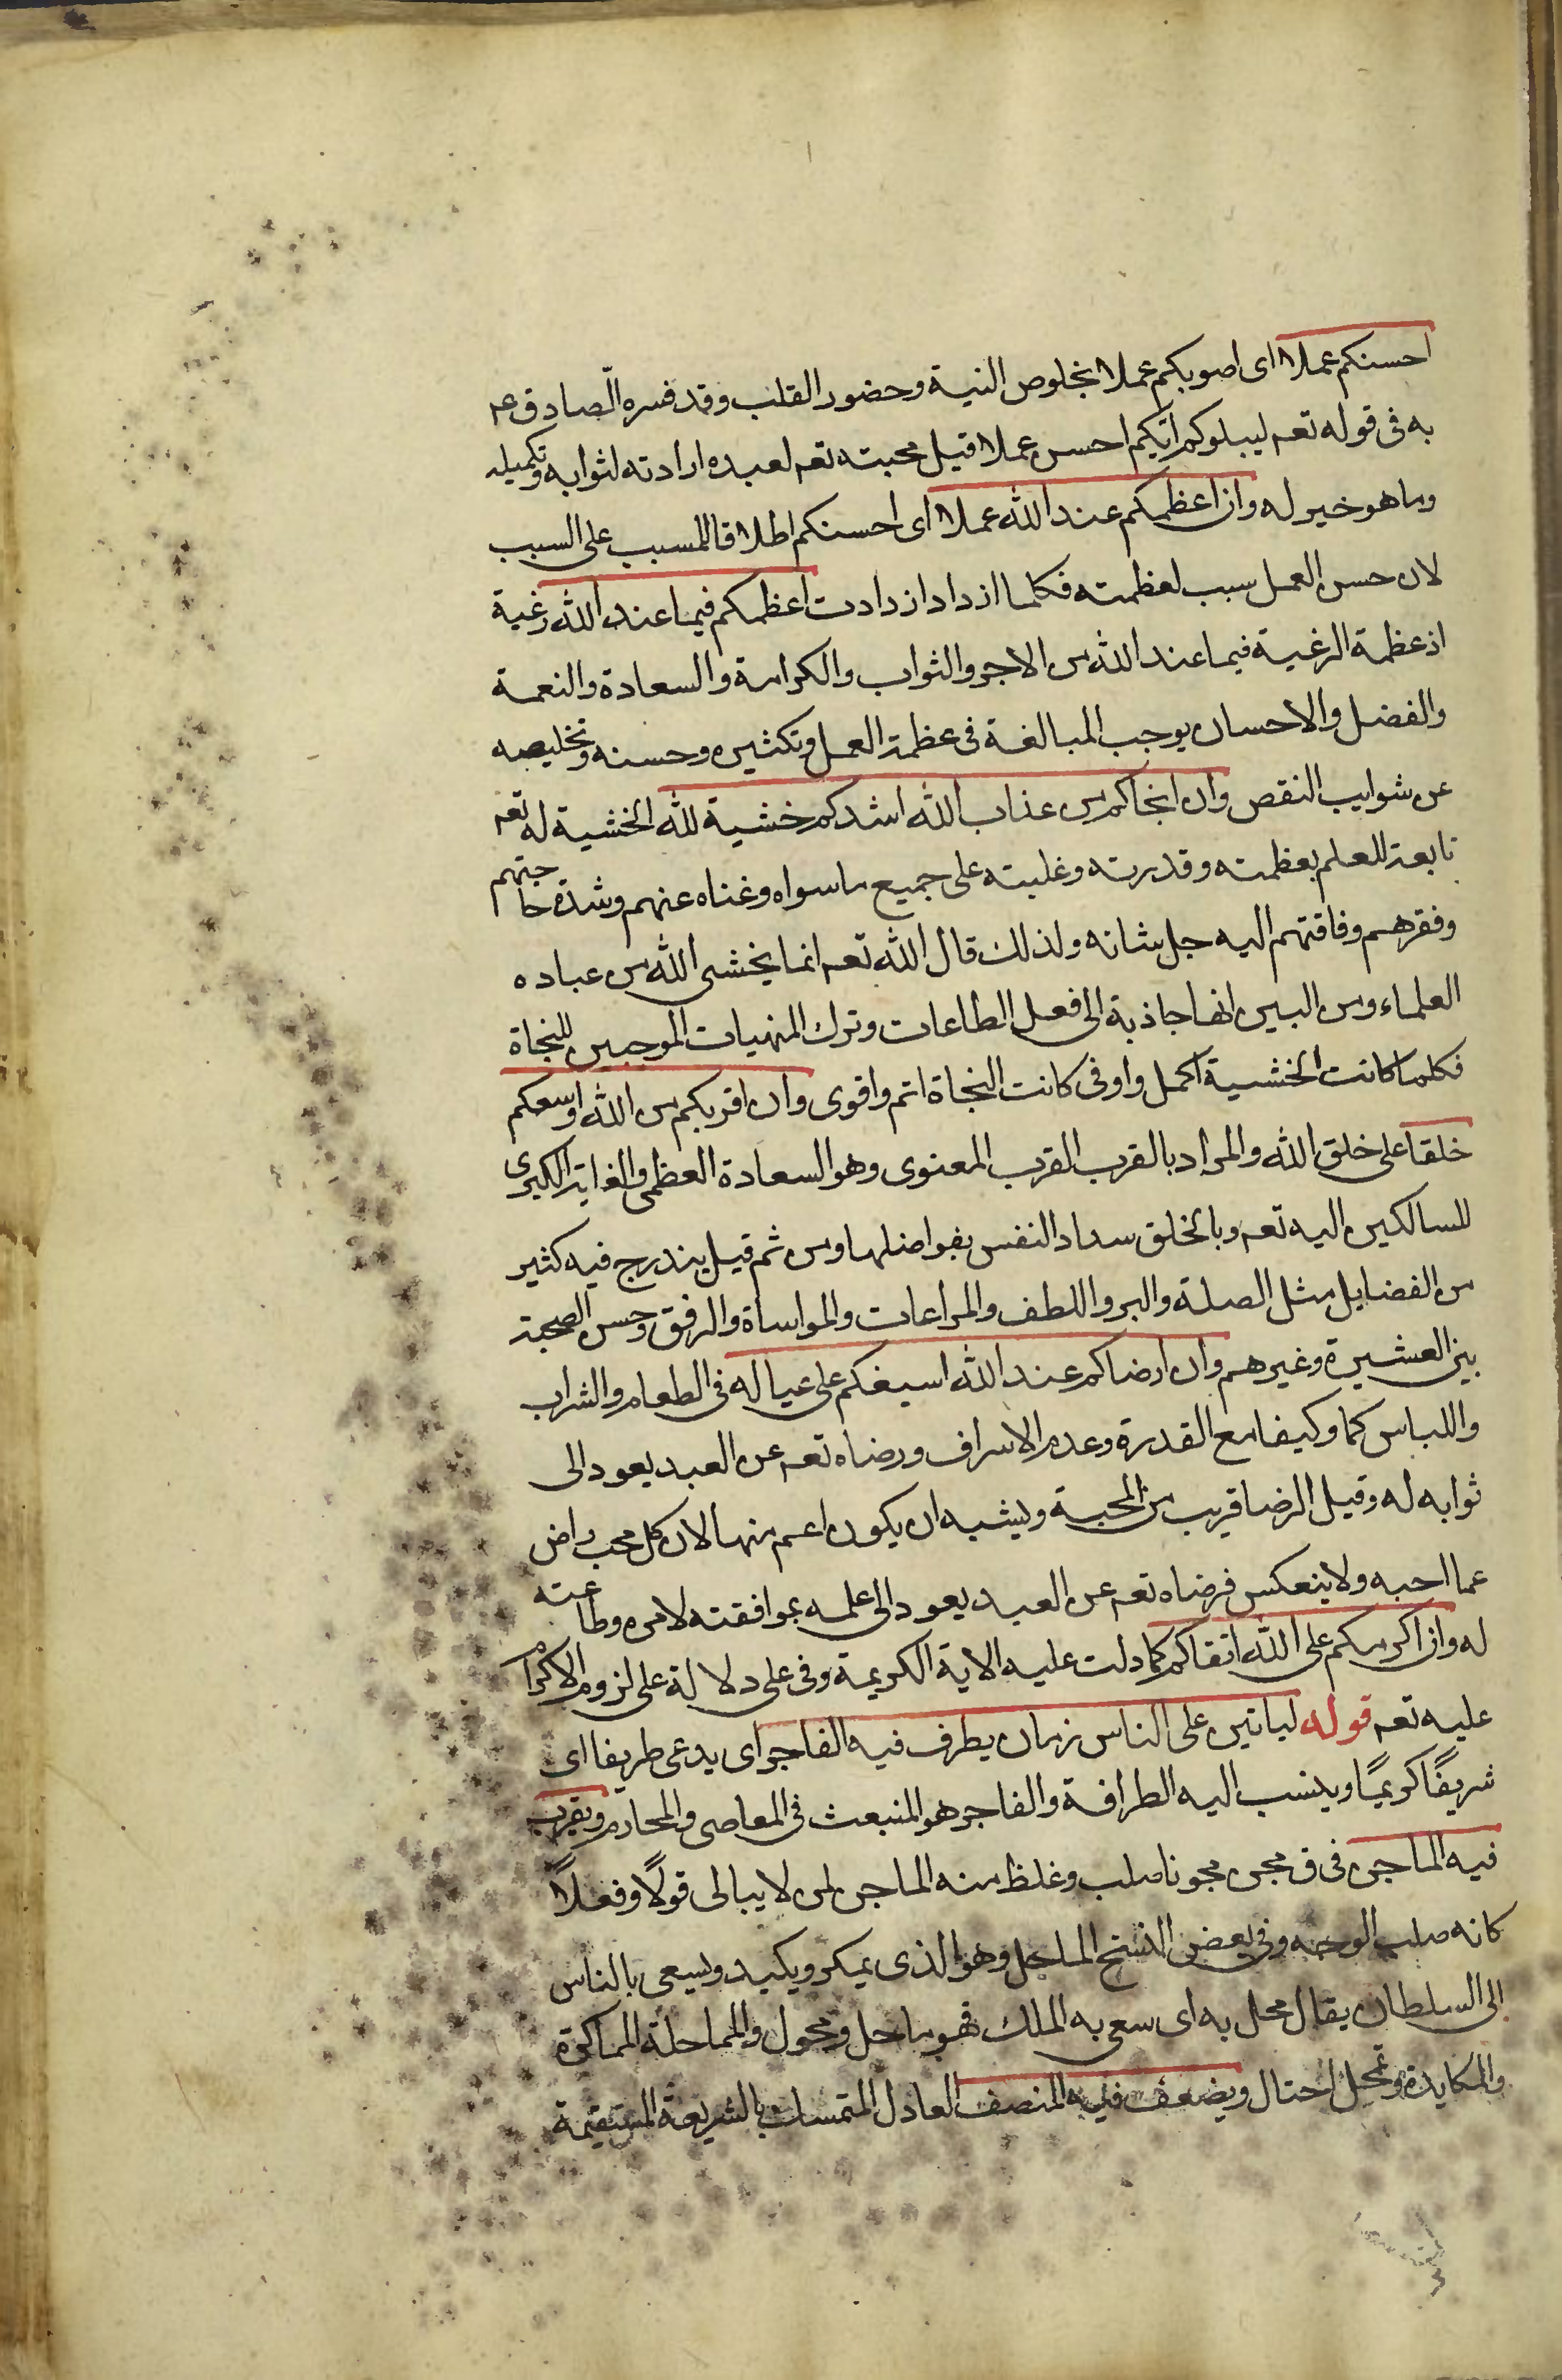 احسنكم عملا اى اصوبكم عملا بخلوص النية وحضور القلب وقد فسره الصادق عم
به فى قوله تعم ليبلوكم ايكم احسن عملا قيل محبته تعم لعبده ارادته لثوابه وتكميله
وما هو خير له وان اعظمكم عند الله عملا اى احسنكم اطلاقا للمسبب على السبب
لان حسن العمل سبب لعظمته فكلما ازداد ازدادت اعظمكم فيما عند الله رغبة
اذ عظمة الرغبة فيما عند الله من الاجر والثواب والكرامة والسعادة والنعمة
والفضل والاحسان يوجب المبالغة فى عظمة العمل وتكثيره وحسنه وتخليصه
عن شوايب النقص وان انجاكم من عذاب الله اشدكم خشية لله الخشية له تعم
تابعة للعلم بعظمته وقدرته وغلبته على جميع ما سواه وغناه عنهم وشدة حاجتهم
وفقرهم وفاقتهم اليه جل شانه ولذلك قال الله تعم انما يخشى الله من عباده
العلماء ومن البين انها جاذبة الى فعل الطاعات وترك المنهيات الموجبين للنجاة
فكلما كانت الخشية اكمل واوفى كانت النجاة اتم واقوى وان اقربكم من الله اوسعكم
خلقا على خلق الله والمراد بالقرب القرب المعنوى وهو السعادة العظمى والغاية الكبرى
للسالكين اليه تعم وبالخلق سداد النفس بفواضلها ومن ثم قيل يندرج فيه كثير
من الفضايل مثل الصلة والبر واللطف والمراعات والمواساة والرفق وحسن الصحبة
بين العشيرة وغيرهم وان ارضاكم عند الله اسبغكم على عياله فى الطعام والشراب
واللباس كما وكيفا مع القدرة وعدم الاسراف ورضاه تعم عن العبد يعود الى
ثوابه له وقيل الرضا قريب من المحبة ويشبه ان يكون اعم منها لان كل محب راض
عما احبه ولا ينعكس فرضاه تعم عن العبد يعود الى علمه بموافقته لامره وطاعته
له وان اكرمكم على الله اتقاكم كما دلت عليه الاية الكريمة وفى على دلالة على لزوم الاكرام
عليه تعم قوله لياتين على الناس زمان يطرف فيه الفاجر اى يدعى طريفا اى
شريفًا كريمًا وينسب اليه الطرافة والفاجر هو المنبعث فى المعاصى والمحارم ويقرب
فيه الماجن فى ق مجن مجونا صلب وغلظ منه الماجن لمن لا يبالى قولًا وفعلًا
كانه صلب الوجه وفى بعض النسخ الماحل وهو الذى يمكر ويكيد ويسعى بالناس
الى السلطان يقال محل به اى سعى به الملك فهو ماحل ومحول والمماحلة المماكرة
والمكايدة وتمحل احتال ويضعف فيه المنصف العادل المتمسك بالشريعة المستقيمة